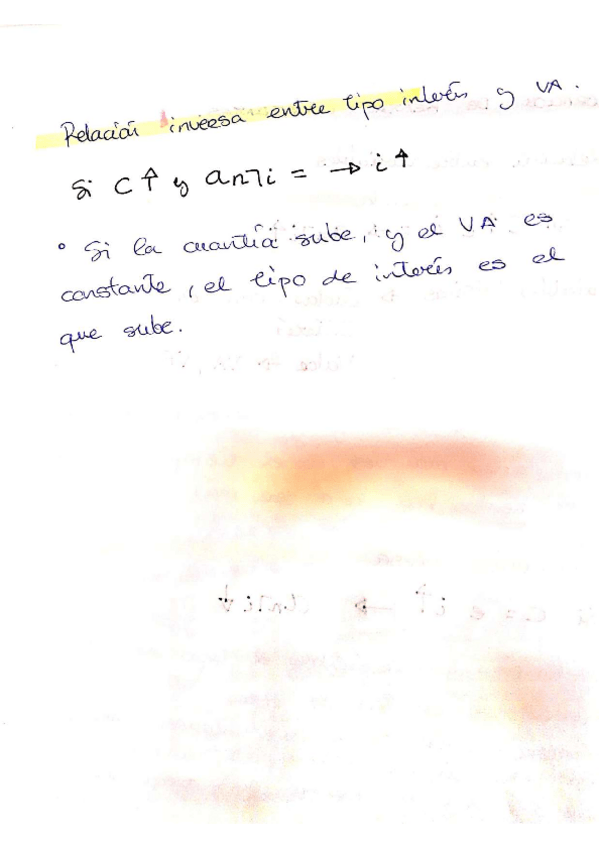 Relación inversa entre tipo interés y VA.
Si C↑ y an¬i = → i↑
° Si la cuantía sube, y el VA es
constante, el tipo de interés es el
que sube.